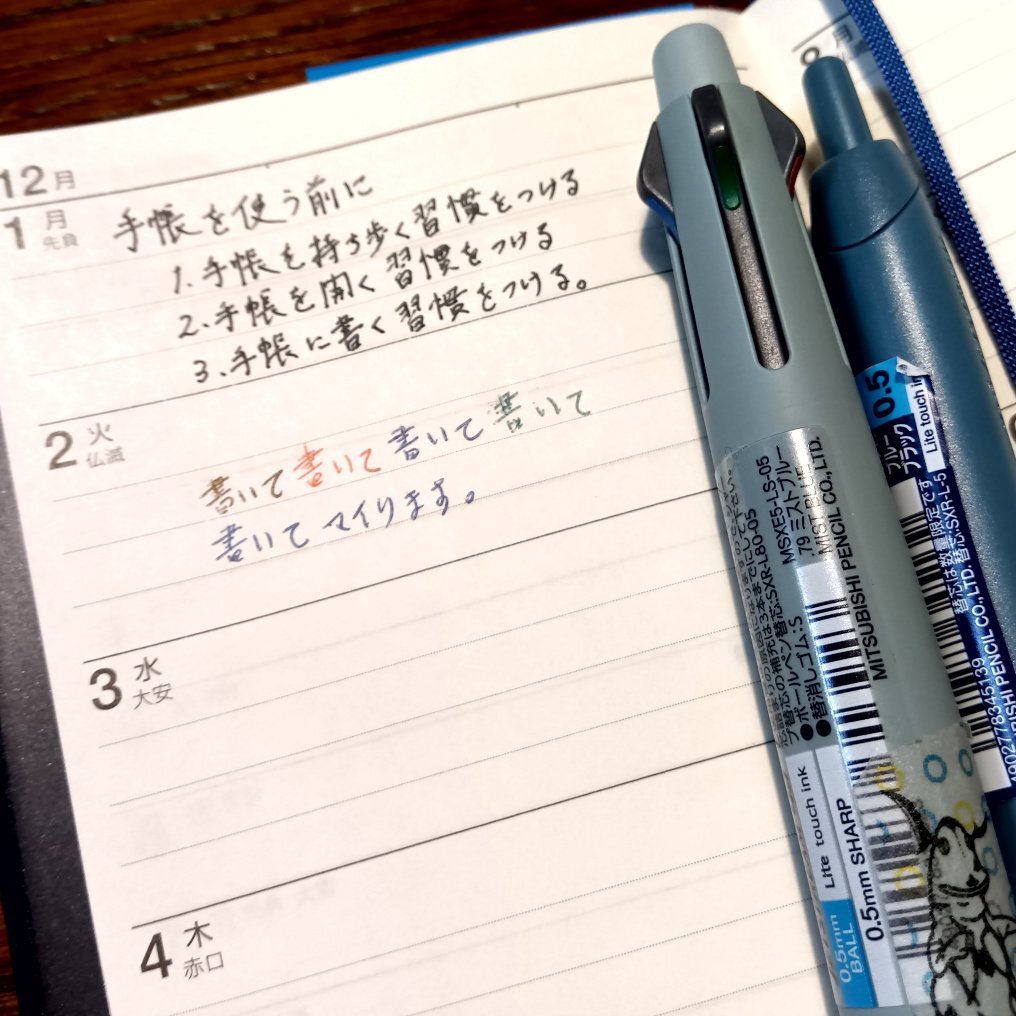 12月
1 月 先負
手帳を使う前に
1.手帳を持ち歩く習慣をつける
2.手帳を開く習慣をつける
3.手帳に書く習慣をつける。
2 火 仏滅
書いて書いて書いて書いて
書いてマイります。
3 水 大安
4 木 赤口
月
プ替芯の補充は3本までにして下さい。
●ボールペン替芯:SXR-L80-05
●替消しゴム:S
MSXE5-LS-05
79 ミストブルー
MIST BLUE
MITSUBISHI PENCIL CO.,LTD.
Lite touch ink
0.5mm BALL
0.5mm SHARP
0.5
Lite touch in
ブルー
ブラック
替芯は数量限定です
替芯:SXR-L-5
BISHI PENCIL CO.,LTD.
4902778345139